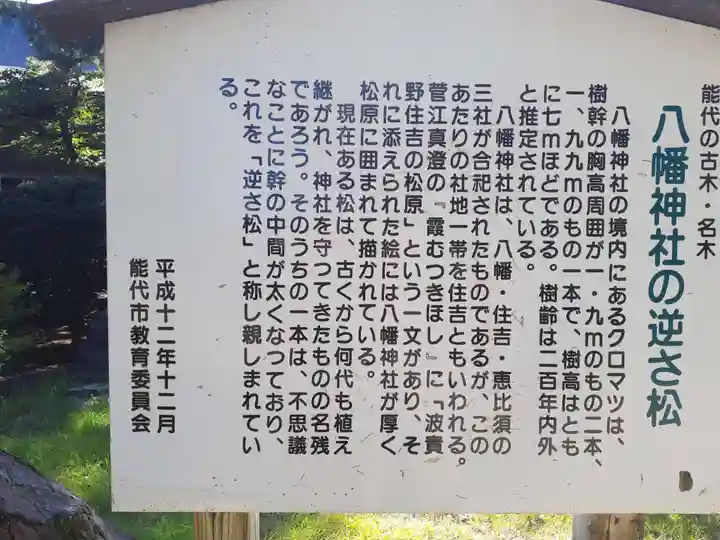 能代の古木・名木
八幡神社の逆さ松
八幡神社の境内にあるクロマツは、
樹幹の胸高周囲が一・九mのもの二本、
一、九九mのもの一本で、樹高はとも
に七mほどである。樹齢は二百年内外
と推定されている。
八幡神社は、八幡・住吉・恵比須の
三社が合祀されたものであるが、この
あたりの社地一帯を住吉ともいわれる。
菅江真澄の『霞むつきほし』に「波貴
野住吉の松原」という一文があり、そ
れに添えられた絵には八幡神社が厚く
松原に囲まれて描かれている。
現在ある松は、古くから何代も植え
継がれ、神社を守つてきたものの名残
であろう。そのうちの一本は、不思議
なことに幹の中間が太くなつており、
これを「逆さ松」と称し親しまれてい
る。
平成十二年十二月
能代市教育委員会